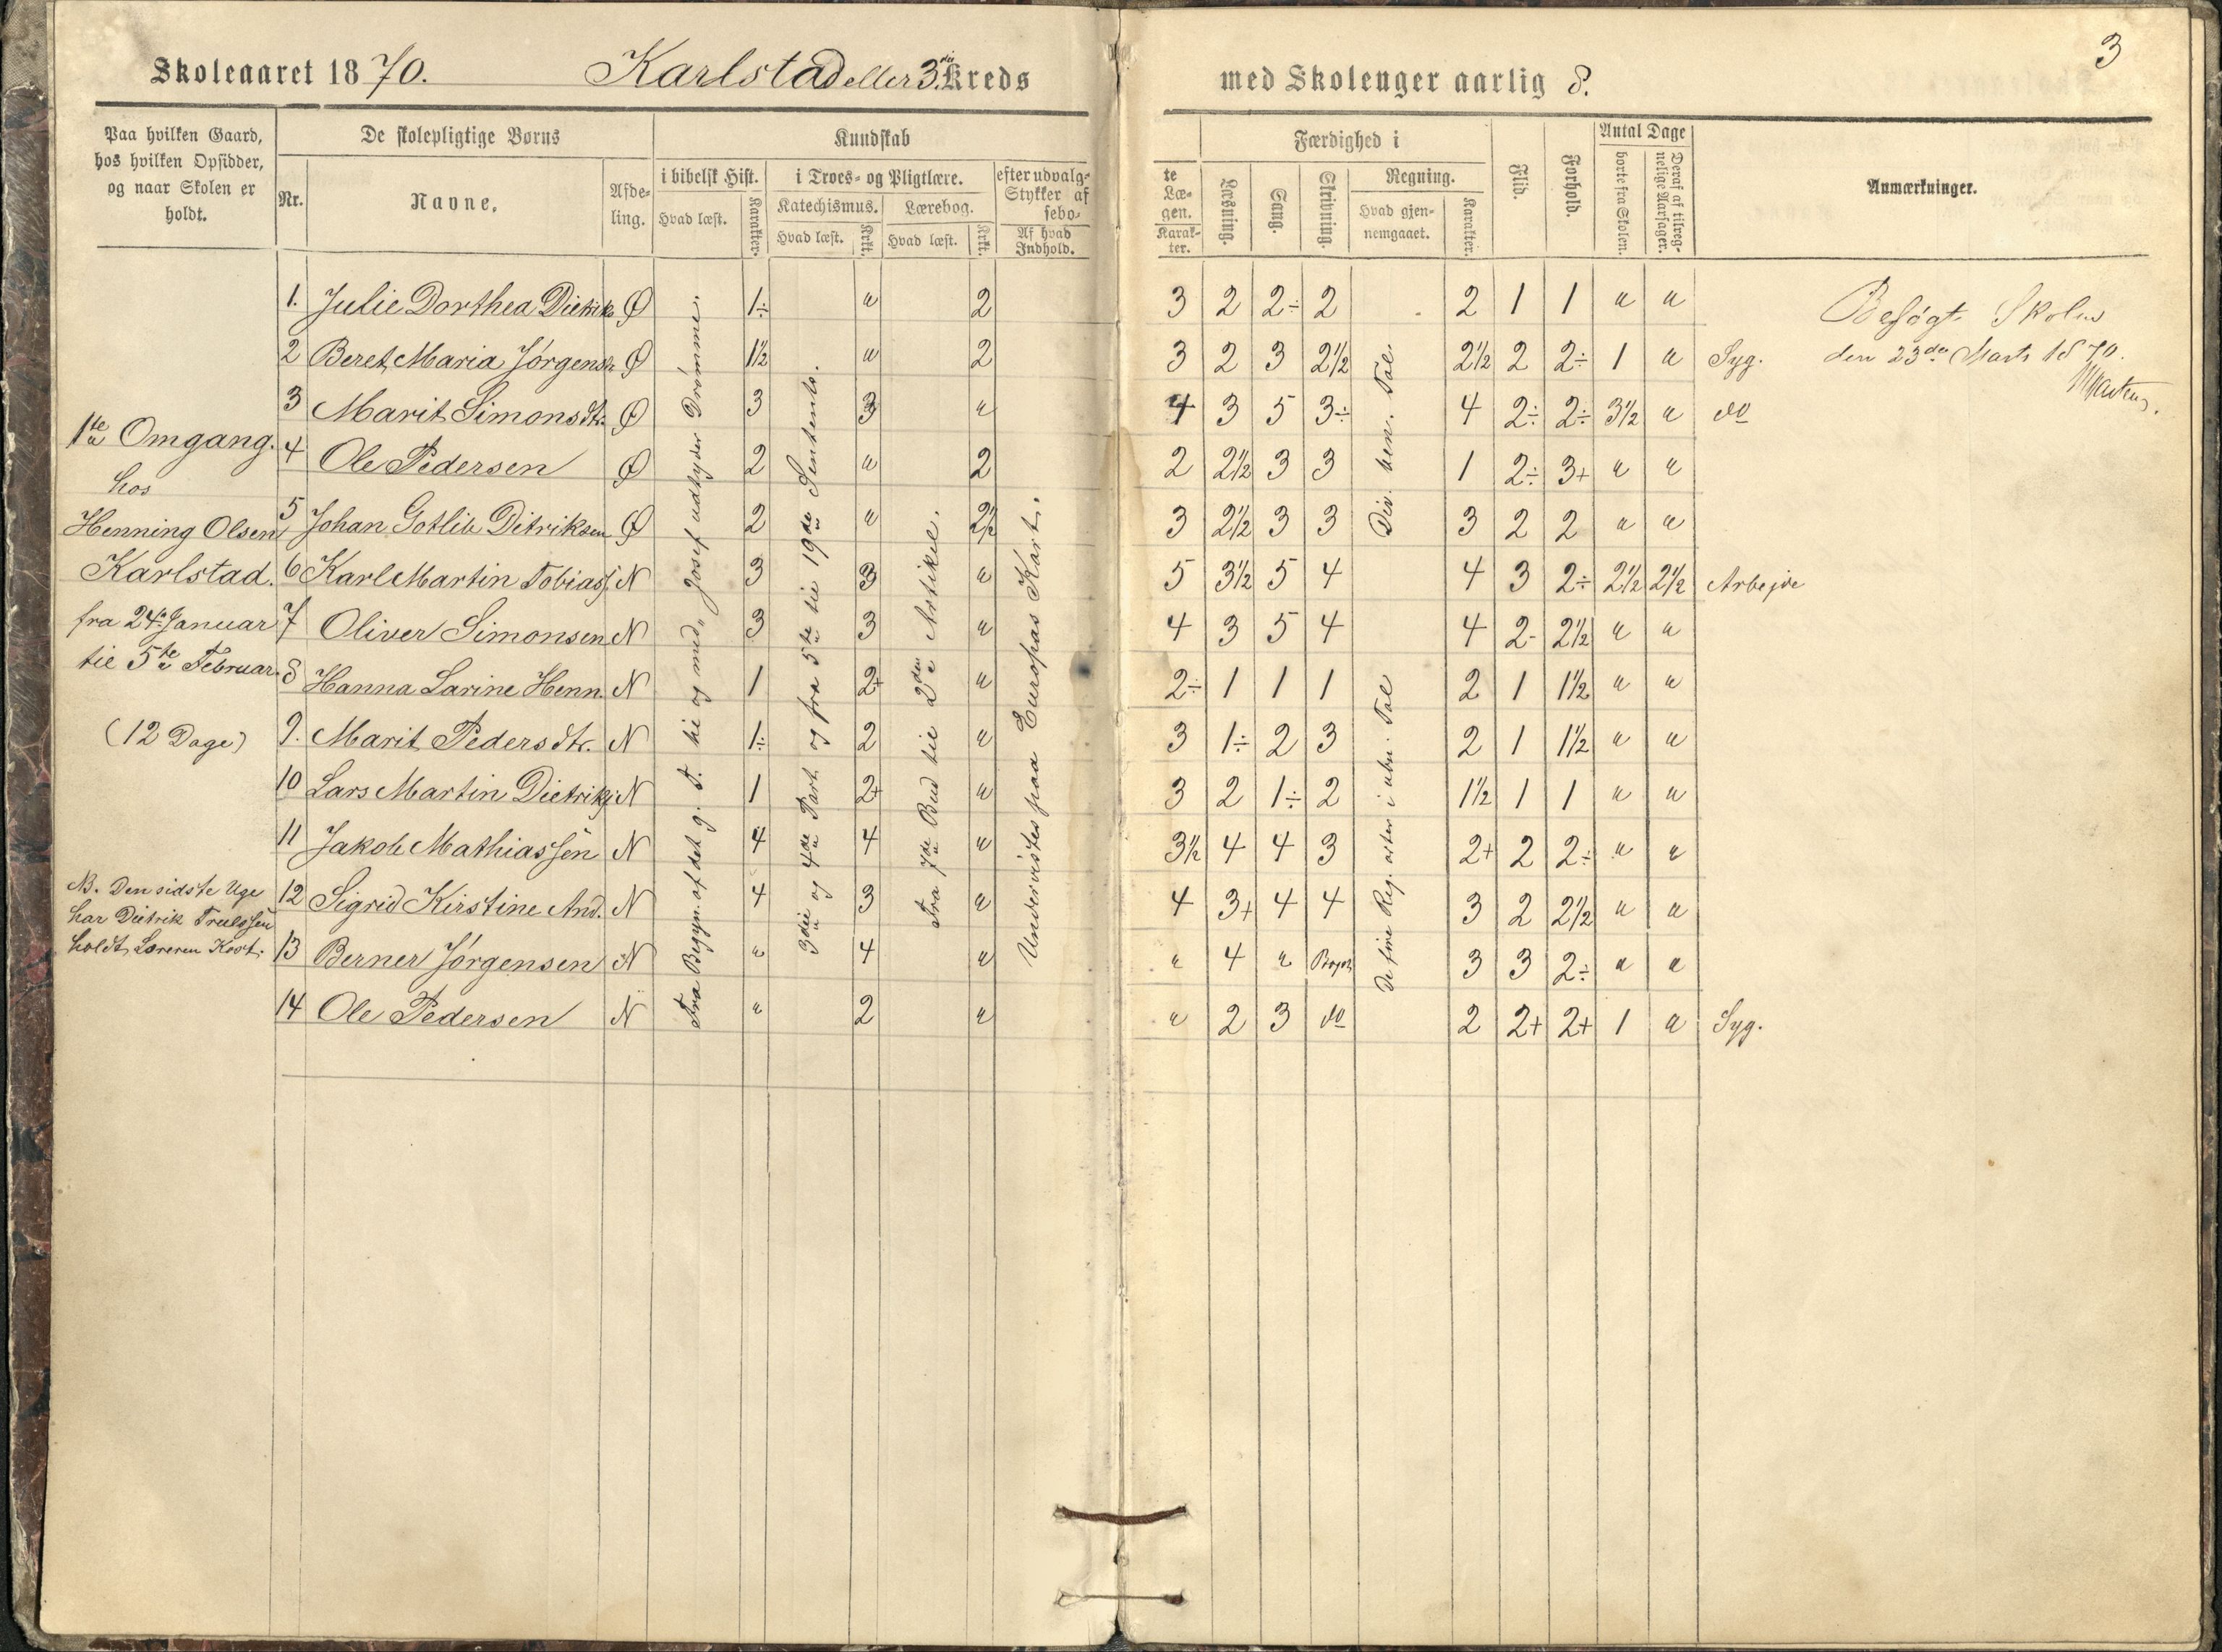 Skoleaaret 1870. Karlstad eller 3die Kreds med Skolenger aarlig 8. 3
Paa hvilken Gaard, hos hvilken Opsidder, og naar Skolen er holdt.
De skolepligtige Børns
Nr. Navne. Afdeling.
Kundskab
i bibelsk Hist. Hvad læst. Karakter.
i Troes- og Pligtlære.
Katechismus. Hvad læst. Krkt.
Lærebog. Hvad læst. Krkt.
efter udvalg- Stykker af febo-
Af hvad Indhold.
te Læ- gen. Karak- ter.
Færdighed i
Læsning. Sang. Skrivning.
Regning. Hvad gjen- nemgaaet. Karakter.
Flid. Forhold.
Antal Dage
borte fra Skolen. Deraf af tilreg- nelige Aarsager.
Anmærkninger.
1ste Omgang.
hos
Henning Olsen
Karlstad.
fra 24de Januar
til 5te Februar.
(12 Dage)
NB. Den sidste Uge
har Dietrik Trulssen
holdt Læreren Kost.
1. Julie Dorthea Dietriks Ø 1÷ " 2 3 2 2÷ 2 2 1 1 " "
2 Beret Maria Jørgensdr. Ø 1½ " 2 3 2 3 2½ 2½ 2 2÷ 1 " Syg.
3 Marit Simonsdtr. Ø 3 3 " 4 3 5 3÷ 4 2÷ 2÷ 3½ " do
4 Ole Pedersen Ø 2 " 2 2 2½ 3 3 1 2÷ 3+ " "
5 Johan Gotlib Ditriksen Ø 2 " 2½ 3 2½ 3 3 3 2 2 " "
6 Karl Martin Tobiass. N 3 3 " 5 3½ 5 4 4 3 2÷ 2½ 2½ Arbejde
7 Oliver Simonsen N 3 3 " 4 3 5 4 4 2- 2½ " "
8 Hanna Larine Henn. N 1 2+ " 2÷ 1 1 1 2 1 1½ " "
9. Marit Pedersdtr. N 1÷ 2 " 3 1÷ 2 3 2 1 1½ " "
10 Lars Martin Dietriks. N 1 2+ " 3 2 1÷ 2 1½ 1 1 " "
11 Jakob Mathiassen N 4 4 " 3½ 4 4 3 2+ 2 2÷ " "
12 Sigrid Kirstine And. N 4 3 " 4 3+ 4 4 3 2 2½ " "
13 Berner Jørgensen N " 4 " " 4 " Begyn. 3 3 2÷ " "
14 Ole Pedersen N " 2 " " 2 3 do 2 2+ 2+ 1 " Syg.
Fra Begyn. af det g. T. til og med "Josef udtyder Drømme.
3die og 4de Part og fra 5te til 19de Sentents.
Fra 7de Bud til 2den Artikel.
Undervistes paa Europas Kart.
Div. ben. Tal.
De fire Reg. arter i ubn. Tal
Besøgt Skolen
den 23de Marts 1870.